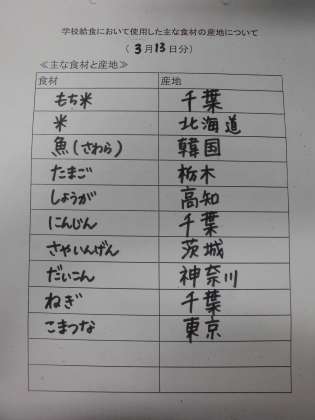 学校給食において使用した主な食材の産地について
(3月13日分)
≪主な食材と産地≫
食材 産地
もち米 千葉
米 北海道
魚(さわら) 韓国
たまご 栃木
しょうが 高知
にんじん 千葉
さやいんげん 茨城
だいこん 神奈川
ねぎ 千葉
こまつな 東京